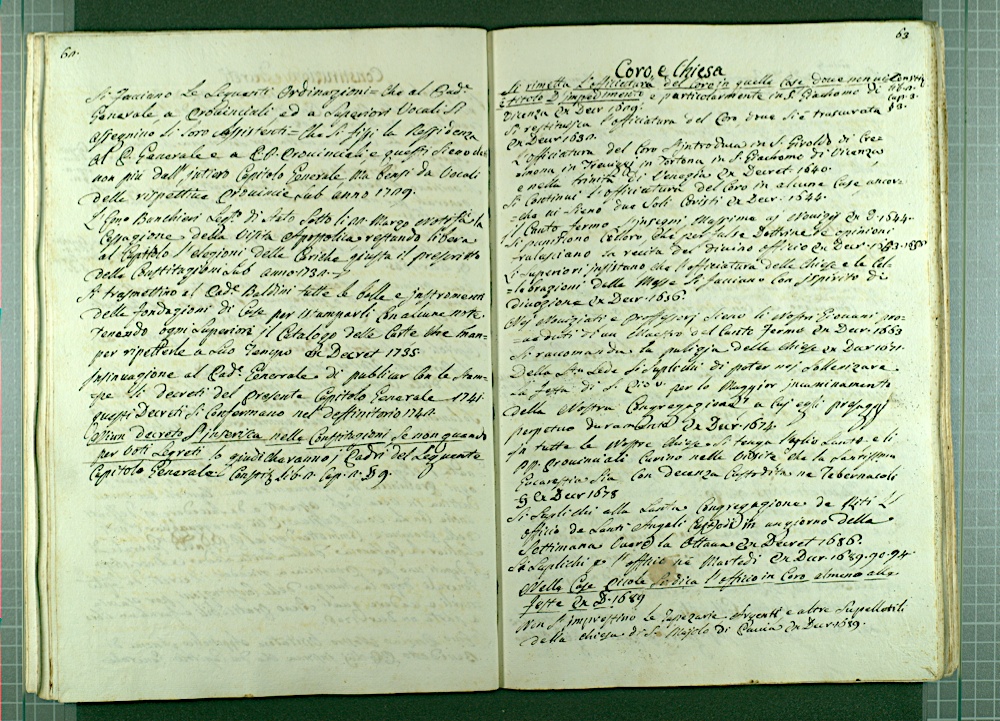 62.
Si facciano le seguenti Ordinazioni = che al Pad.e
Generale a Provinciali ed a Superiori Vocali S'
assegnino li loro assistenti = che si fissi la Residenza
al P. Generale e a P.P. Provinciali e questi sieno
non più dall'intiero Capitolo Generale ma bensi da Vocali
delle rispettive Provincie sub anno 1729.
Stato sotto li Marzo notifica la
Cessazione della Visita Appostolica restando libera
al Capitolo l'elezioni delle Cariche giusta il prescritto
delle Constitazioni sub anno 1734
Si trasmettino al Pad.e Baldini tutte le bolle e instromenti
delle fondazioni di Case per stamparli con alcune note
tenendo ogni Superiore il Catalogo delle Carte che man=
per ripeterle a suo tempo Ex Decret 1735.
Insinuazione al Pad.e Generale di publicar con le stam=
pe li decreti del presente Capitolo Generale 1741.
questi Decreti si confermano nel deffinitorio 1742.
Nissun decreto s'inserisca nelle Constitazioni se non quando
per Voti segreti lo giudicheranno i Padri del seguente
Capitolo Generale Constit. Lib. Cap.
63
Coro, e Chiesa
Si rimetta l'officiatura del Coro in quelle Case dove non vi
è titolo d'impedimento e particolarmente in S. Giachomo di
Vicenza Ex Decr 1609.
Si restituisca l'officiatura del Coro dove si è trascurata
Ex Decr 1630.
L'officiatura del Coro s'introduca in S. Giroldo di Cre=
mona in Trevizzi in Tortona in S. Giachomo di Vicenza
e nella trinità di Venezia Ex Decret 1640.
Si Continui l'officiatura del Coro in alcune Case ancor=
che vi sieno due soli Coristi Ex Decr. 1644.
il Canto fermo s'insegni massime a' Novizzi Ex D. 1644.
Si puniscono coloro che per false Dottrine e opinioni
tralasciano la recita del divino officio Ex Decr.
Li Superiori insistano che l'officiatura delle Chiese e le Cel=
=lebrazioni delle Messe si facciano con spirito di
divozione Ex Decr. 1656.
Nei Noviziati e Professorj sieno li Nostri Giovani pro=
=veduti di un Maestro del Canto fermo Ex Decr. 1663
Si raccomanda la pulizia delle Chiese Ex Decr 1671.
Dalla Sta. Sede si suplichi di poter noi solennizare
la festa di S. Gio. per lo Maggior incaminamento
della Nostra Congregazione a cui egli presaggì
perpetuo duramento Ex Decr. 1674.
In tutte le Nostre Chiese si tenga l'oglio Santo e li
P.P. Provinciali curino nelle Visite che la Santissima
Eucarestia sia con decenza custodita ne Tabernacoli
Ex Decr 1678
Si suplichi alla Santa Congregazione de Riti l'
officio de Santi Angeli Custodi in un giorno della
Settimana fuori la Ottava Ex Decret 1686.
Si suplichi e l'officio ne Martedi Ex Decr 1689. 90. 94.
Nelle Case picole si dica l'officio in Coro almeno alle
feste Ex D. 1689
Non s'imprestino le Taperzarie Argenti e altre Supellettili
della Chiesa di S. Majolo di Pavia Ex Decr 1689.